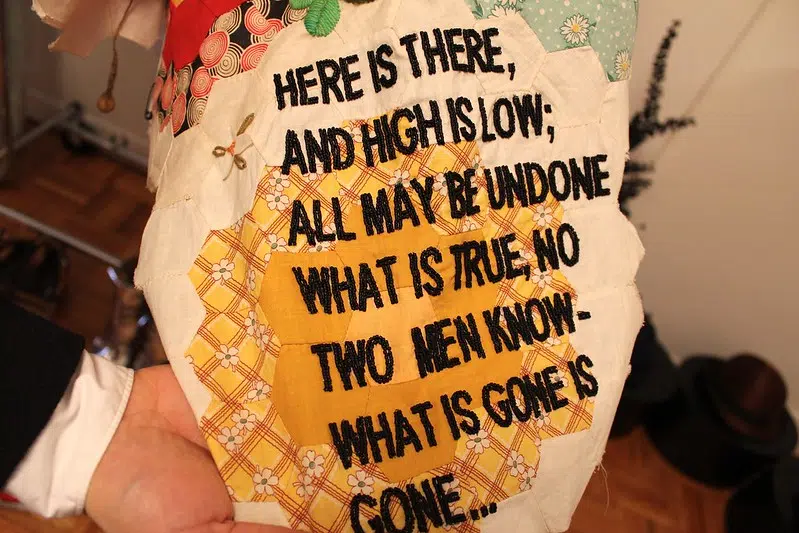 HERE IS THERE,
AND HIGH IS LOW;
ALL MAY BE UNDONE
WHAT IS TRUE, NO
TWO MEN KNOW-
WHAT IS GONE IS
GONE...